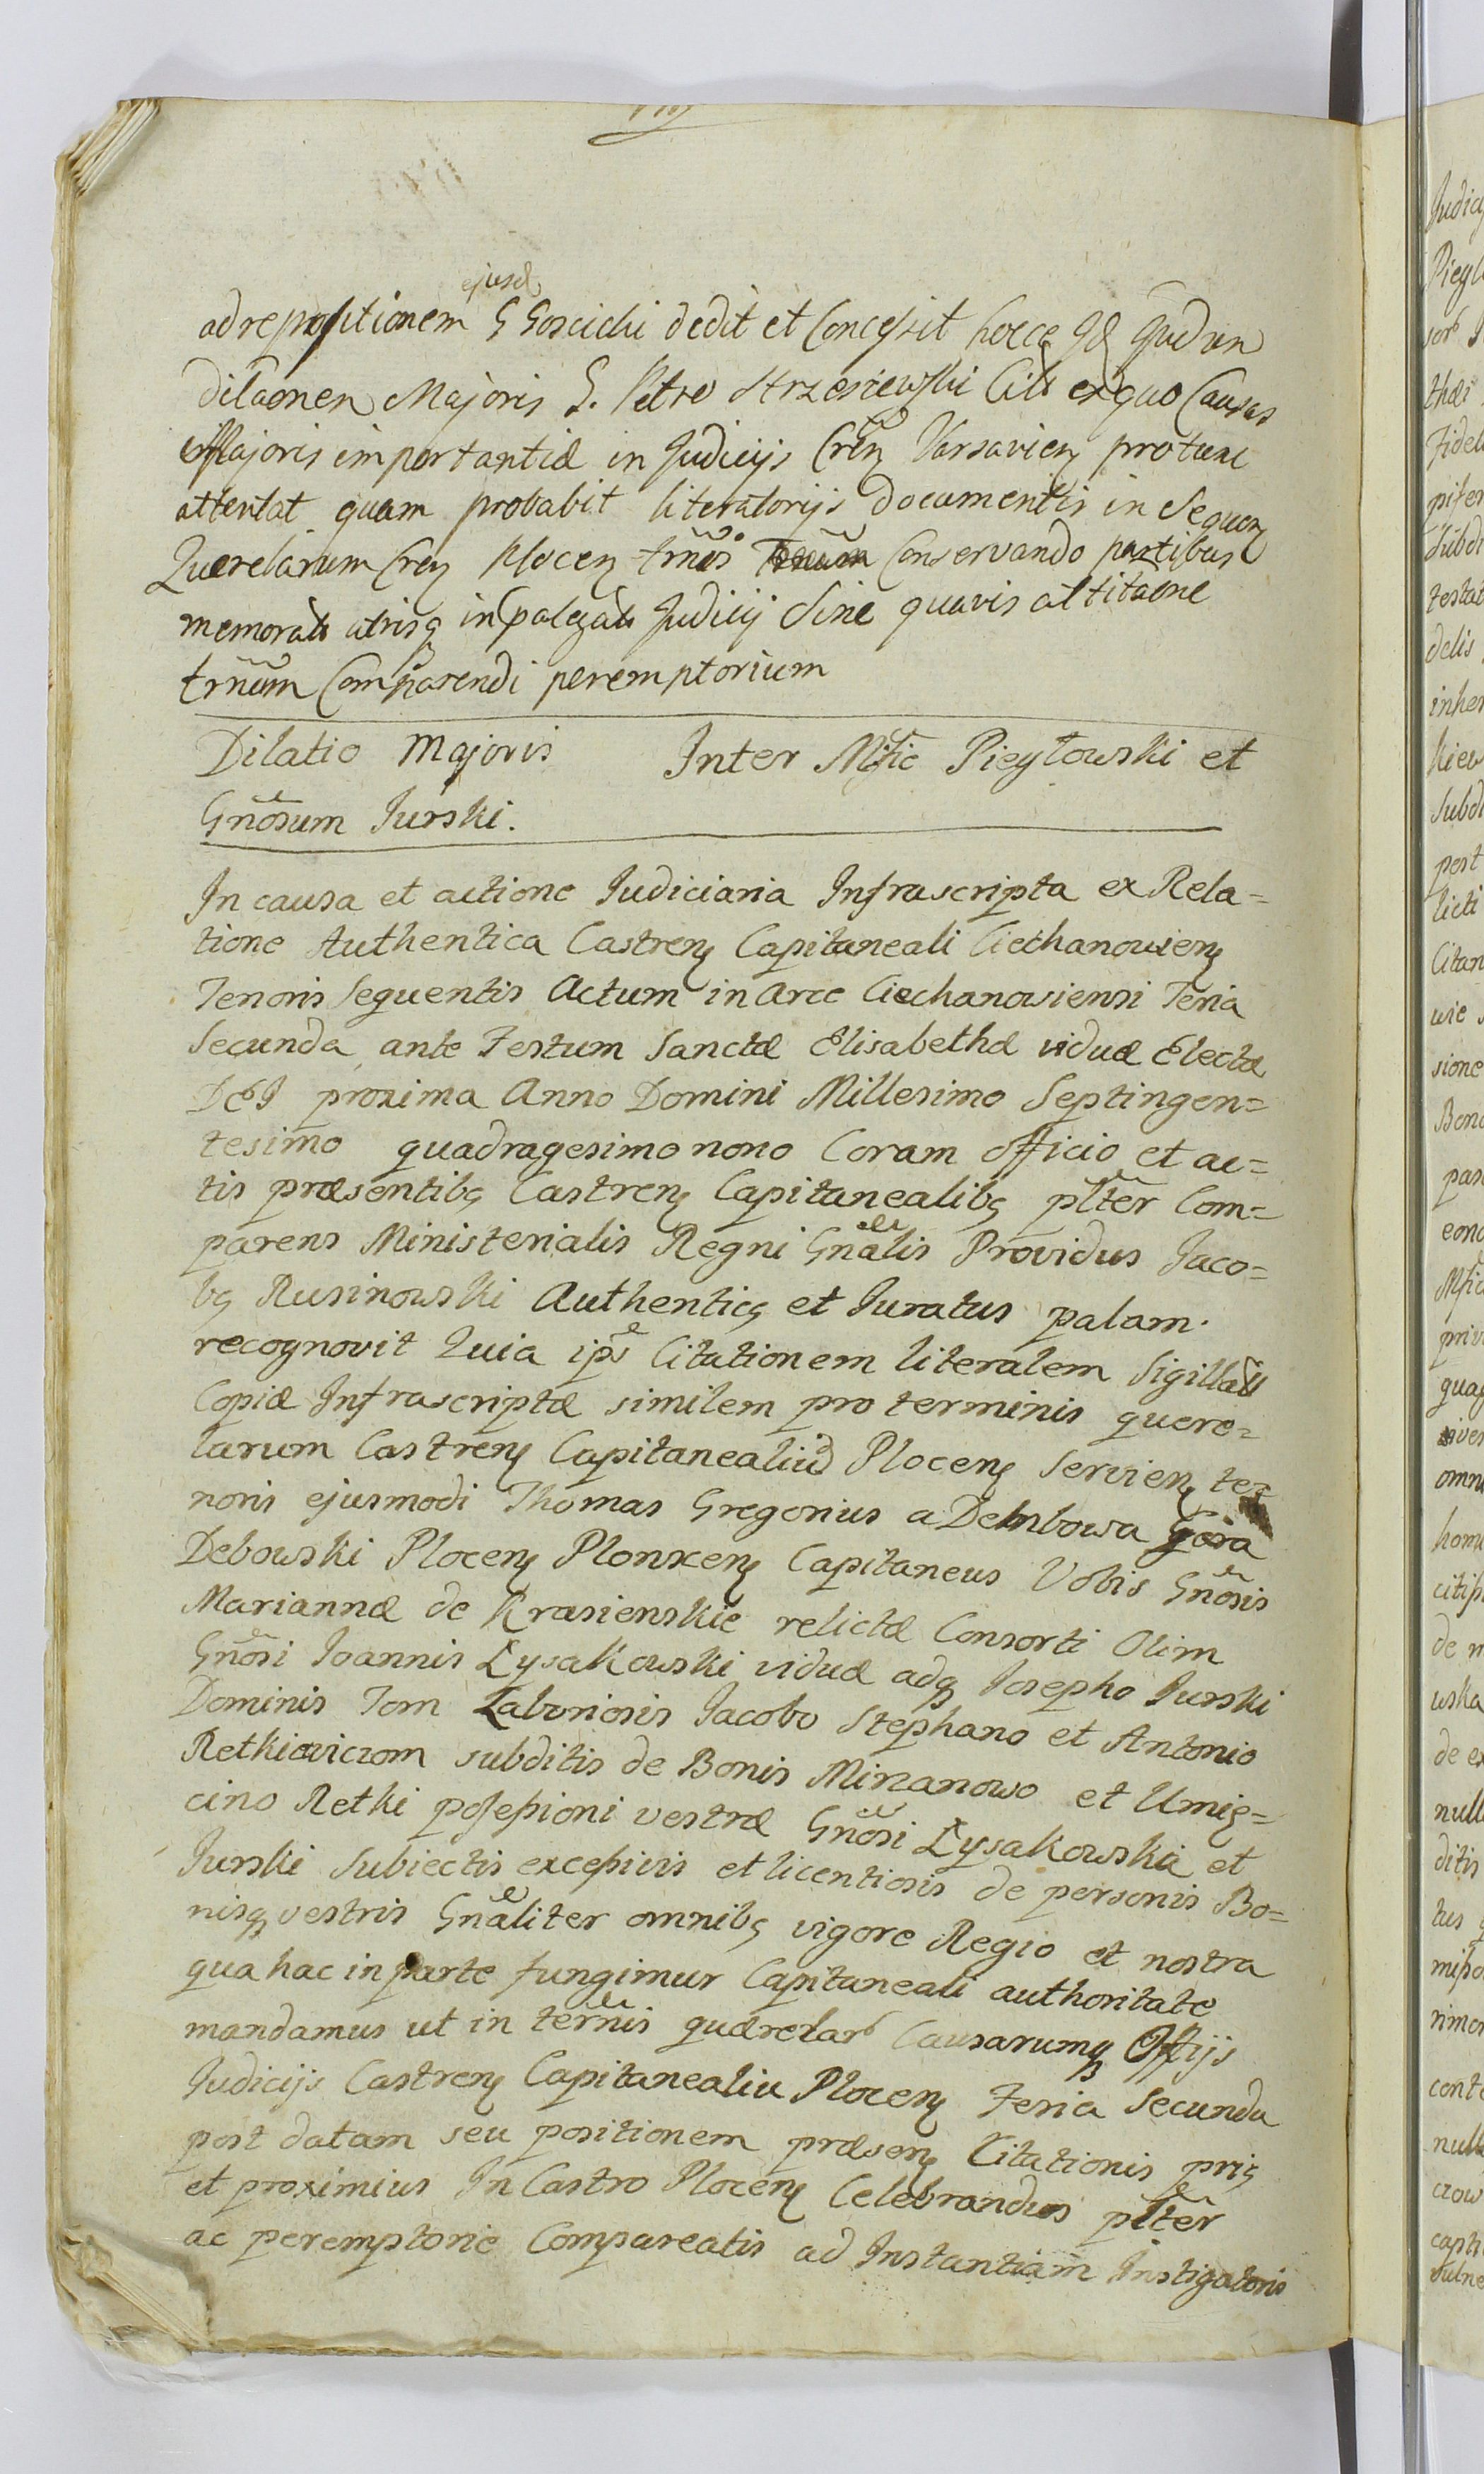 ejusd
ad repositionem G Goscicki dedit et Concessit hocce Jud
dilaonen Majoris G. Petro Strzesiewski Citt ex quo Causas
Majoris importantiæ in Judicijs Cren Varsavien protunc
attentat quam probabit literatorijs documentis in Sequen
Querelarum Cren Plocen trñis Conservando partibus
memorats utrisq in palegats Judicij Sine quavis attitaone
trñum Comparendi peremptorium
Dilatio Majoris Inter Mfic Piegłowski et
Gnõsum Jurski.
In causa et actione Judiciaria Infrascripta ex Rela=
tione Authentica Castren Capitaneali Ciechanovien
Tenoris Sequentis Actum in Arce Ciechanoviensi Feria
Secunda ante Festum Sanctæ Elisabethæ viduæ Electæ
DEI proxima Anno Domini Millesimo Septingen=
tesimo quadragesimo nono Coram officio et ac=
tis præsentibq Castren Capitanealibq plter Com=
parens Ministerialis Regni Gnãlis Providus Jaco=
bq Rusinowski Authenticq et Juratus palam
recognovit Quia ips Citationem literalem Sigillatt
Copiæ Infrascriptæ similem pro terminis quere=
larum Castren Capitanealiud Plocen Servien te=
noris ejusmodi Thomas Gregorius a Dembowa Gora
Debowski Plocen Plonscen Capitaneus Vobis Gnõsis
Mariannæ de Krasienskie relictæ Consorti Olim
Gnõsi Joannis Łysakowski viduæ adq Josepho Jurski
Dominis Tom Laboriosis Jacobo Stephano et Antonio
Retkiewiczom subditis de Bonis Mirzanowo et Umie=
cino Retki possessioni vestræ Gnõsi Łysakowska et
Jurski Subiectis excessivis et licentiosis de personis Bo=
nisq vestris Gnãliter omnibq vigore Regio et nostra
qua hac in parte fungimur Capitaneali authoritate
mandamus ut in termis quærelarb Causarumq Offijs
Judicijs Castren Capitanealiu Plocen Feria Secunda
post datam seu positionem præsen Citationis priq
et proximius In Castro Plocen Celebrandus plter
ac peremptorie Compareatis ad Instantiam Instigatoris